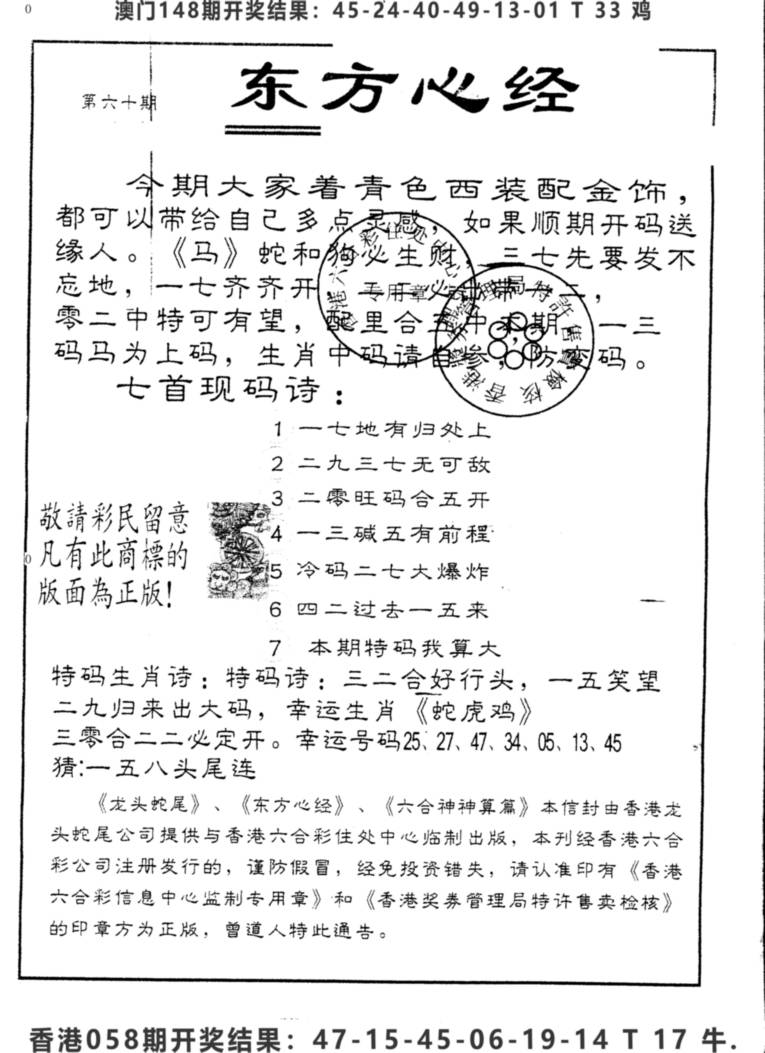 0
澳门148期开奖结果：45-24-40-49-13-01 T 33 鸡
第六十期
东方心经
今期大家着青色西装配金饰，
都可以带给自己多点灵感，如果顺期开码送
缘人。《马》蛇和狗必生财，三七先要发不
忘地，一七齐齐开
零二中特可有望，配里合五中本期，一三
码马为上码，生肖中码请自参，防变码。
七首现码诗：
1 一七地有归处上
2 二九三七无可敌
3 二零旺码合五开
4 一三碱五有前程
5 冷码二七大爆炸
6 四二过去一五来
7 本期特码我算大
敬請彩民留意
凡有此商標的
版面為正版!
0
特码生肖诗：特码诗：三二合好行头，一五笑望
二九归来出大码，幸运生肖《蛇虎鸡》
三零合二二必定开。幸运号码25、27、47、34、05、13、45
猜:一五八头尾连
《龙头蛇尾》、《东方心经》、《六合神神算篇》本信封由香港龙
头蛇尾公司提供与香港六合彩住处中心临制出版，本刊经香港六合
彩公司注册发行的，谨防假冒，经免投资错失，请认准印有《香港
六合彩信息中心监制专用章》和《香港奖券管理局特许售卖检核》
的印章方为正版，曾道人特此通告。
专用章
香港058期开奖结果：47-15-45-06-19-14 T 17 牛.